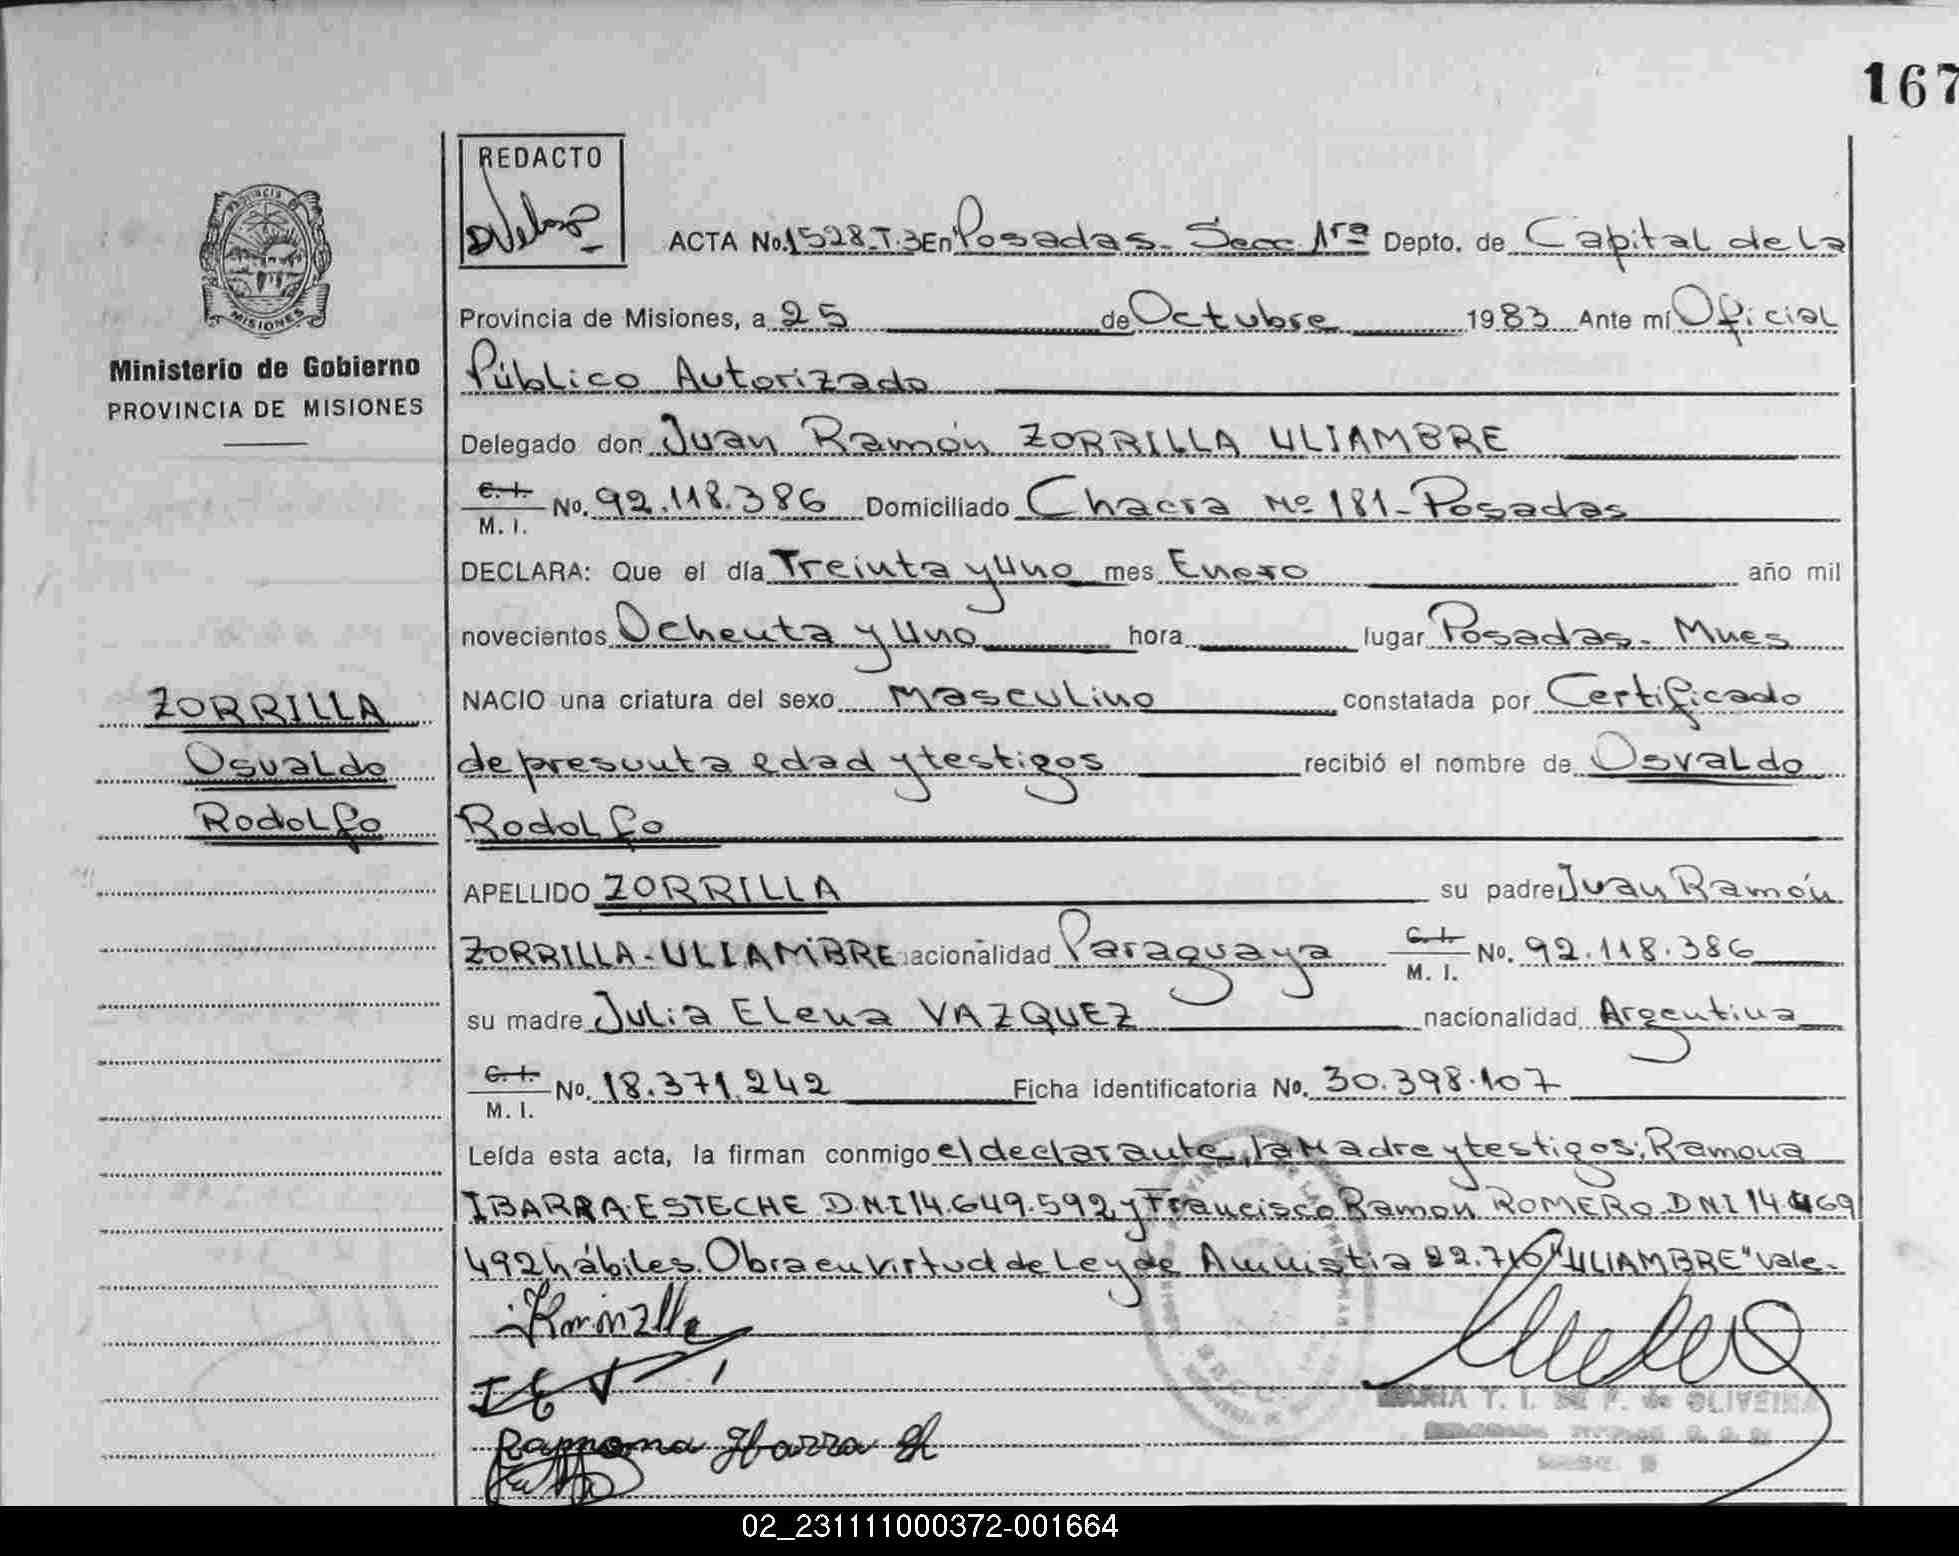 167
REDACTO
ACTA No. 1528-T.3 En Posadas- Secc. 1ra Depto. de Capital de la
Provincia de Misiones, a 25 de Octubre 1983 Ante mí Oficial
Público Autorizado
Ministerio de Gobierno
PROVINCIA DE MISIONES
Delegado don Juan Ramón ZORRILLA ULIAMBRE
C. I. No. 92.118.386 Domiciliado Chacra Nº 181-Posadas
M. I.
DECLARA: Que el día Treinta y Uno mes Enero año mil
novecientos Ochenta y Uno hora lugar Posadas. Mnes
NACIO una criatura del sexo Masculino constatada por Certificado
de presunta edad y testigos recibió el nombre de Osvaldo
Rodolfo
ZORRILLA
Osvaldo
Rodolfo
APELLIDO ZORRILLA su padre Juan Ramón
ZORRILLA-ULIAMBRE nacionalidad Paraguaya C. I. No. 92.118.386
M. I.
su madre Julia Elena VAZQUEZ nacionalidad Argentina
C. I. No. 18.371.242 Ficha identificatoria No. 30.398.107
M. I.
Leída esta acta, la firman conmigo el declarante, la Madre y testigos; Ramona
IBARRA-ESTECHE D.N.I 14.649.592 y Francisco Ramon ROMERO D N I 14.469
492 hábiles. Obra en virtud de Ley de Amnistia 22.710 "ULIAMBRE" vale-
Ramona Ibarra
MARIA T. I. de OLIVEIRA
02_231111000372-001664